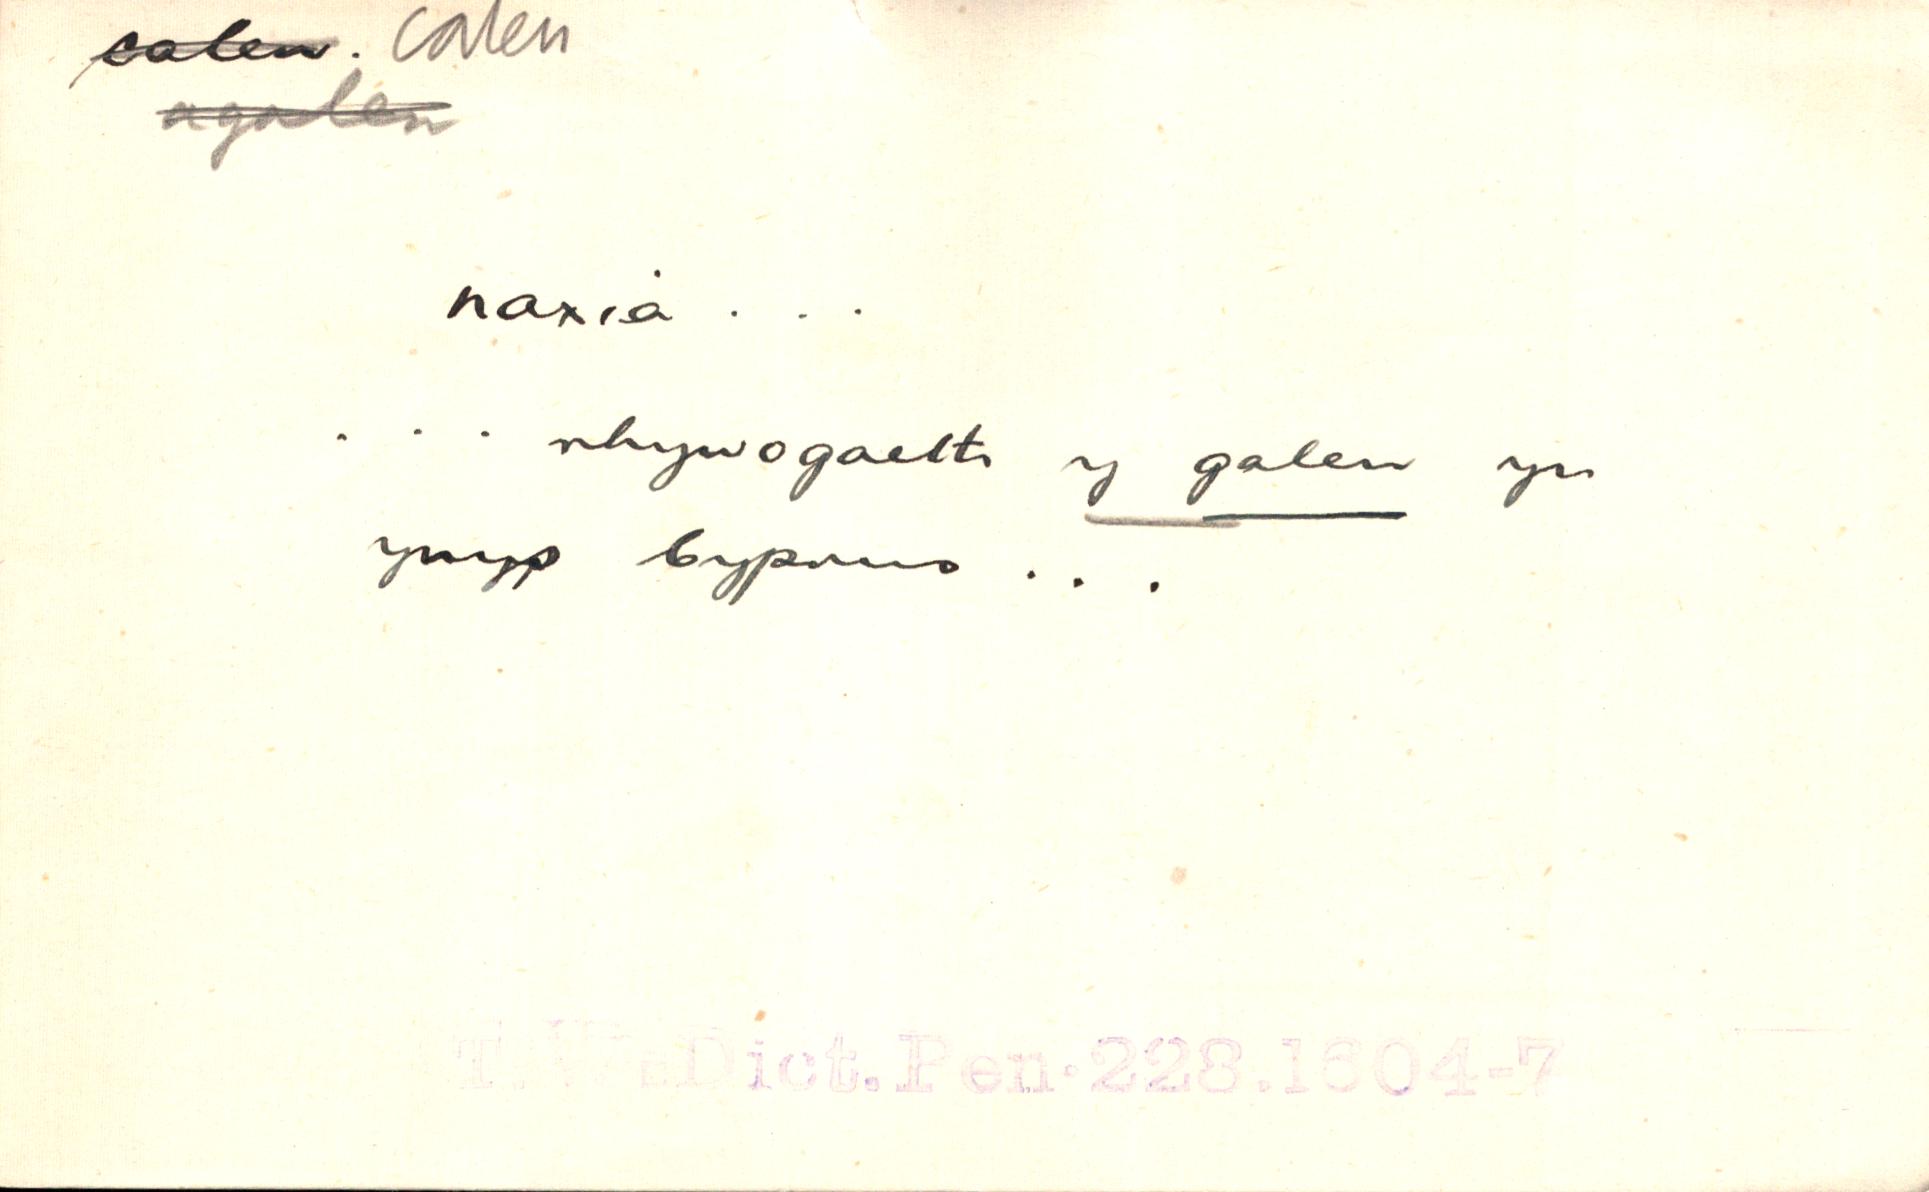 calen. calen
agalen
naxia . . .
. . . rhywogaeth y galen yn
ynys Cyprus . . .
T.W:Dict.Pen.228.1604-7